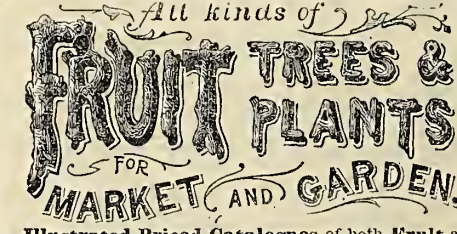 All kinds of
FRUIT TREES &
PLANTS
FOR
MARKET AND GARDEN.
Illustrated Priced Catalogues of both Fruit